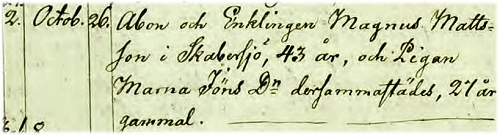 2. Octob. 26. Åbon och Enklingen Magnus Matts-
son i Skabersjö, 43 år, och Pigan
Marna Jöns Dr dersammastädes, 27 år
gammal.